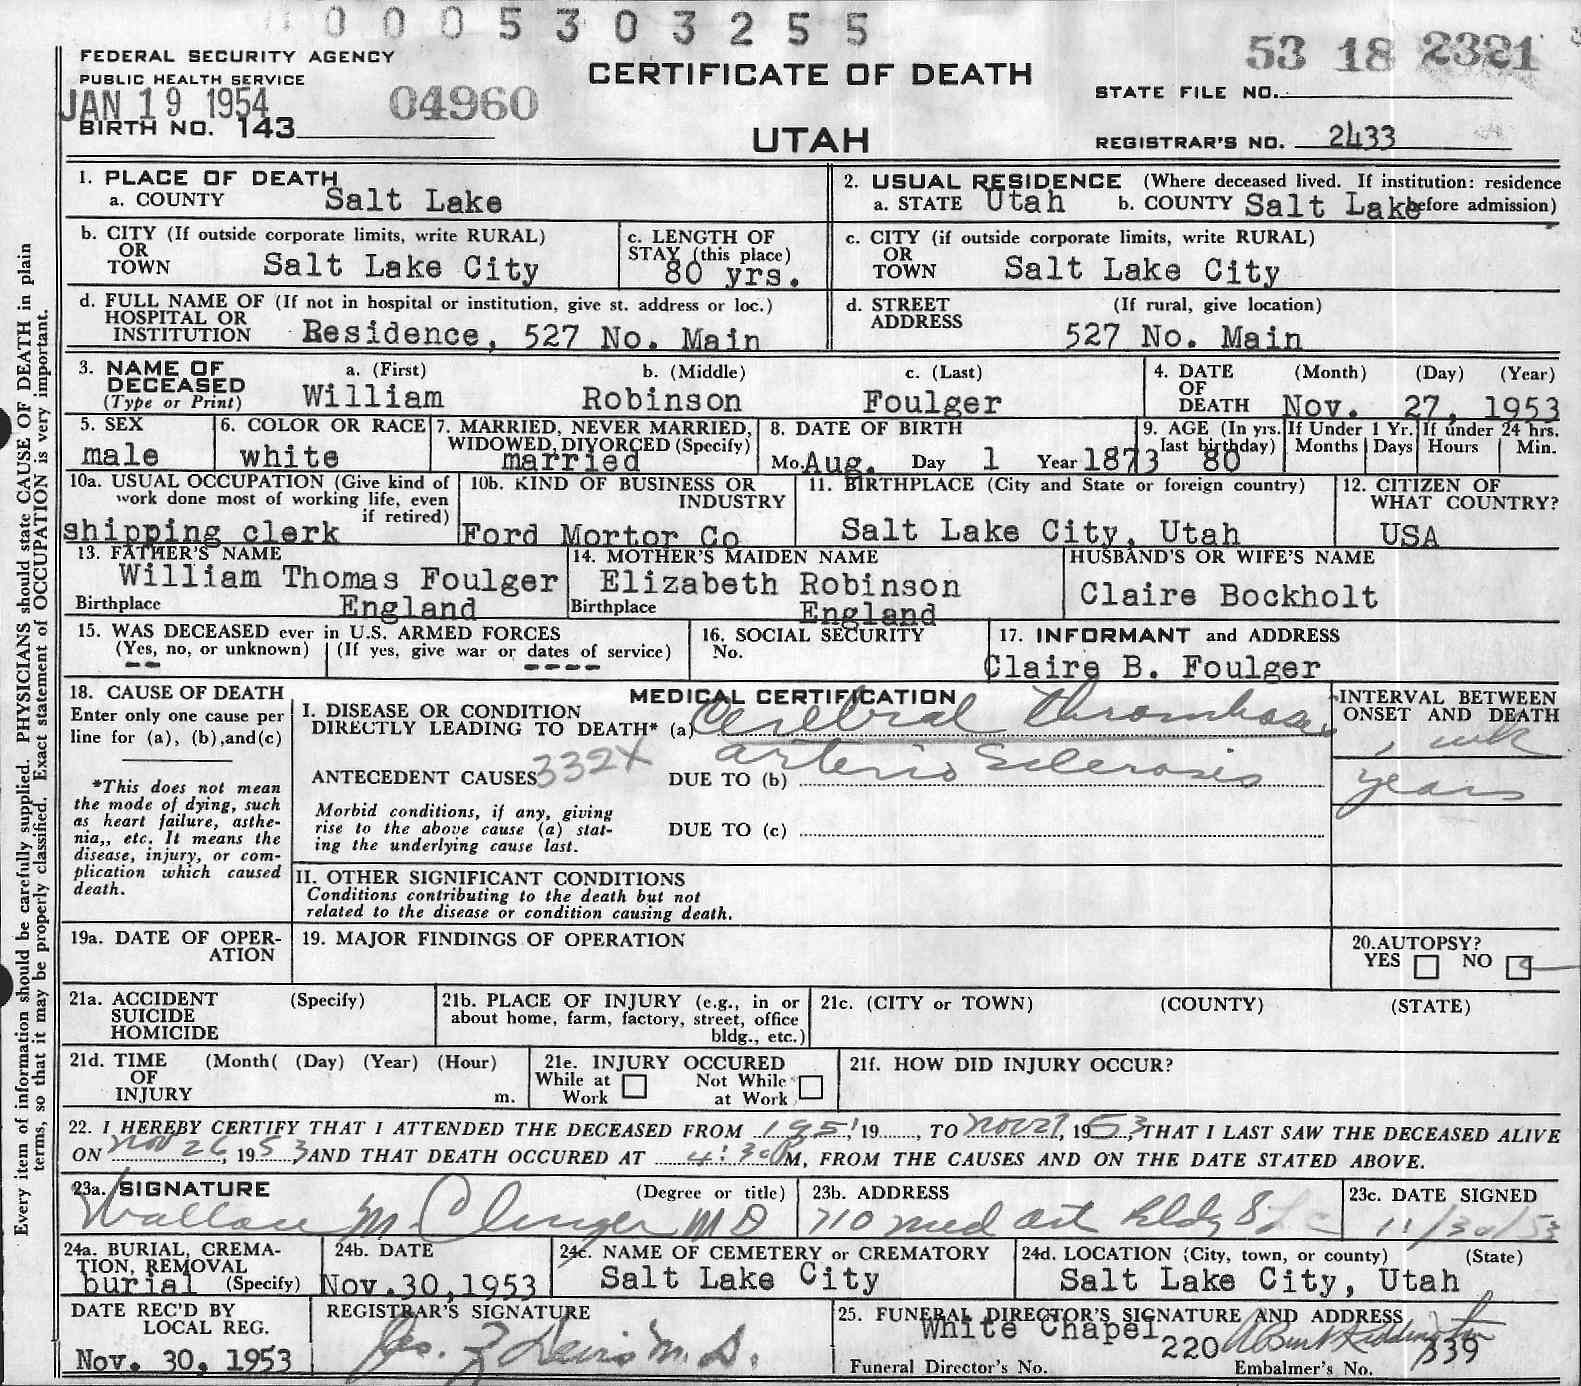 0005303255
FEDERAL SECURITY AGENCY
PUBLIC HEALTH SERVICE
JAN 19 1954
04960
BIRTH NO. 143
CERTIFICATE OF DEATH
UTAH
53 18 2321
STATE FILE NO.
REGISTRAR'S NO. 2433
Every item of information should be carefully supplied. PHYSICIANS should state CAUSE OF DEATH in plain
terms, so that it may be properly classified. Exact statement of OCCUPATION is very important.
1. PLACE OF DEATH
a. COUNTY Salt Lake
2. USUAL RESIDENCE (Where deceased lived. If institution: residence
a. STATE Utah b. COUNTY Salt Lake before admission)
b. CITY (If outside corporate limits, write RURAL)
OR
TOWN Salt Lake City
c. LENGTH OF
STAY (this place)
80 yrs.
c. CITY (if outside corporate limits, write RURAL)
OR
TOWN Salt Lake City
d. FULL NAME OF (If not in hospital or institution, give st. address or loc.)
HOSPITAL OR
INSTITUTION Residence, 527 No. Main
d. STREET (If rural, give location)
ADDRESS
527 No. Main
3. NAME OF a. (First) b. (Middle) c. (Last)
DECEASED
(Type or Print) William Robinson Foulger
4. DATE (Month) (Day) (Year)
OF
DEATH Nov. 27, 1953
5. SEX
male
6. COLOR OR RACE
white
7. MARRIED, NEVER MARRIED,
WIDOWED, DIVORCED (Specify)
married
8. DATE OF BIRTH
Mo. Aug. Day 1 Year 1873
9. AGE (In yrs.
last birthday)
80
If Under 1 Yr.
Months Days
If under 24 hrs.
Hours Min.
10a. USUAL OCCUPATION (Give kind of
work done most of working life, even
if retired)
shipping clerk
10b. KIND OF BUSINESS OR
INDUSTRY
Ford Mortor Co
11. BIRTHPLACE (City and State or foreign country)
Salt Lake City, Utah
12. CITIZEN OF
WHAT COUNTRY?
USA
13. FATHER'S NAME
William Thomas Foulger
Birthplace England
14. MOTHER'S MAIDEN NAME
Elizabeth Robinson
Birthplace England
HUSBAND'S OR WIFE'S NAME
Claire Bockholt
15. WAS DECEASED ever in U.S. ARMED FORCES
(Yes, no, or unknown) (If yes, give war or dates of service)
-- ----
16. SOCIAL SECURITY
No.
17. INFORMANT and ADDRESS
Claire B. Foulger
18. CAUSE OF DEATH
Enter only one cause per
line for (a), (b), and (c)
*This does not mean
the mode of dying, such
as heart failure, asthe-
nia,, etc. It means the
disease, injury, or com-
plication which caused
death.
MEDICAL CERTIFICATION
I. DISEASE OR CONDITION
DIRECTLY LEADING TO DEATH* (a) Cerebral Thrombosis
ANTECEDENT CAUSES 332X DUE TO (b) Arterio Sclerosis
Morbid conditions, if any, giving
rise to the above cause (a) stat-
ing the underlying cause last.
DUE TO (c)
II. OTHER SIGNIFICANT CONDITIONS
Conditions contributing to the death but not
related to the disease or condition causing death.
INTERVAL BETWEEN
ONSET AND DEATH
1 wk
years
19a. DATE OF OPER-
ATION
19. MAJOR FINDINGS OF OPERATION
20. AUTOPSY?
YES NO
21a. ACCIDENT (Specify)
SUICIDE
HOMICIDE
21b. PLACE OF INJURY (e.g., in or
about home, farm, factory, street, office
bldg., etc.)
21c. (CITY or TOWN) (COUNTY) (STATE)
21d. TIME (Month( (Day) (Year) (Hour)
OF
INJURY m.
21e. INJURY OCCURED
While at Work Not While at Work
21f. HOW DID INJURY OCCUR?
22. I HEREBY CERTIFY THAT I ATTENDED THE DECEASED FROM 1951, 19......, TO Nov 27, 1953, THAT I LAST SAW THE DECEASED ALIVE
ON Nov 26, 1953 AND THAT DEATH OCCURED AT 4:30 PM, FROM THE CAUSES AND ON THE DATE STATED ABOVE.
23a. SIGNATURE (Degree or title)
Wallace M. Clinger MD
23b. ADDRESS
710 Med Art Bldg SLC
23c. DATE SIGNED
11/30/53
24a. BURIAL, CREMA-
TION, REMOVAL
burial (Specify)
24b. DATE
Nov.30,1953
24c. NAME OF CEMETERY or CREMATORY
Salt Lake City
24d. LOCATION (City, town, or county) (State)
Salt Lake City, Utah
DATE REC'D BY
LOCAL REG.
Nov. 30, 1953
REGISTRAR'S SIGNATURE
M.D.
25. FUNERAL DIRECTOR'S SIGNATURE AND ADDRESS
White Chapel
220
Funeral Director's No. Embalmer's No. 339